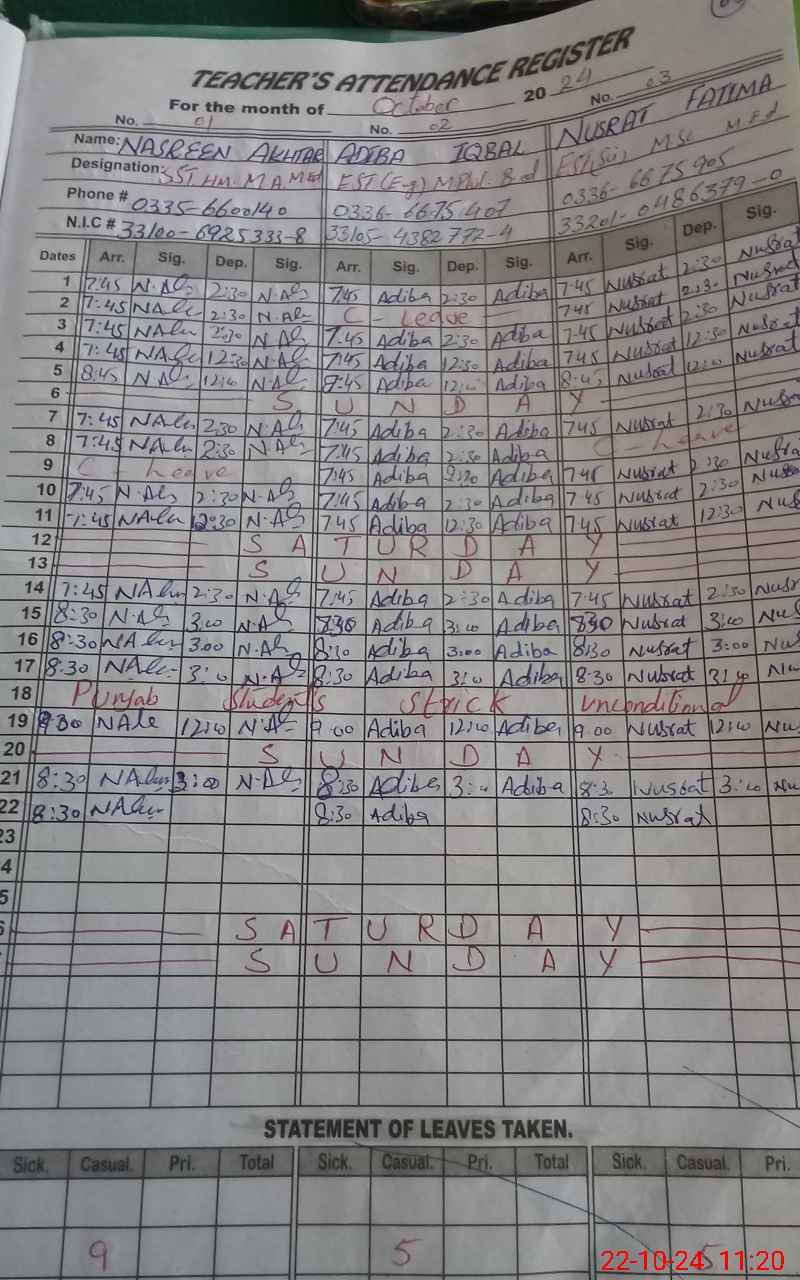 TEACHER'S ATTENDANCE REGISTER
For the month of October 20 24
No. 01 No. 02 No. 03
Name: NASREEN AKHTAR ADIBA IQBAL NUSRAT FATIMA
Designation: SST HM. M A M Ed EST (Eng) MPhil. B ed EST(Sci) MSc M Ed
Phone # 0335-6600140 0336-6675407 0336-6675905
N.I.C # 33100-6925333-8 33105-4382772-4 33201-0486379-0
Dates Arr. Sig. Dep. Sig. Arr. Sig. Dep. Sig. Arr. Sig. Dep. Sig.
1 7:45 2:30 7:45 Adiba 2:30 Adiba 7:45 Nusrat 2:30 Nusrat
2 7:45 2:30 C - Leave 7:45 Nusrat 2:30 Nusrat
3 7:45 2:30 7:45 Adiba 2:30 Adiba 7:45 Nusrat 2:30 Nusrat
4 7:45 12:30 7:45 Adiba 12:30 Adiba 7:45 Nusrat 12:30 Nusrat
5 8:45 Adiba Adiba Nusrat Nusrat
6 S U N D A Y
7 7:45 2:30 7:45 Adiba 2:30 Adiba 7:45 Nusrat 2:30 Nusra
8 7:45 2:30 7:45 Adiba 2:30 Adiba C - Leave
9 C - Leave 7:45 Adiba 2:30 Adiba 7:45 Nusrat 2:30 Nusra
10 7:45 2:30 7:45 Adiba 2:30 Adiba 7:45 Nusrat 2:30
11 7:45 12:30 7:45 Adiba 12:30 Adiba 7:45 Nusrat 12:30 Nus
12 S A T U R D A Y
13 S U N D A Y
14 7:45 2:30 7:45 Adiba 2:30 Adiba 7:45 Nusrat 2:30 Nusr
15 8:30 3:00 8:30 Adiba 3:00 Adiba 8:30 Nusrat 3:00 Nus
16 8:30 3:00 8:30 Adiba 3:00 Adiba 8:30 Nusrat 3:00 Nus
17 8:30 3:00 8:30 Adiba 3:00 Adiba 8:30 Nusrat Nu
18 Punjab Students Strick unconditional
19 12:00 9:00 Adiba 12:00 Adiba 9:00 Nusrat 12:00 Nu
20 S U N D A Y
21 8:30 3:00 8:30 Adiba 3:00 Adiba 8:30 Nusrat 3:00 Nu
22 8:30 8:30 Adiba 8:30 Nusrat
23
4
5
6 S A T U R D A Y
S U N D A Y
STATEMENT OF LEAVES TAKEN.
Sick. Casual. Pri. Total Sick. Casual. Pri. Total Sick. Casual. Pri.
9 5 5
22-10-24 11:20